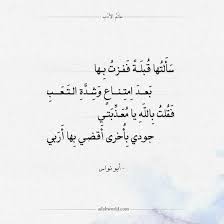 عالم الأدب
سَأَلتُها قُبلَةً فَفُزتُ بِها
بَعدَ اِمتِناعٍ وَشِدَّةِ التَعَبِ
فَقُلتُ بِاللَهِ يا مُعَذِّبَتي
جودي بِأُخرى أَقضي بِها أَرَبي
- أبو نواس
adabworld.com